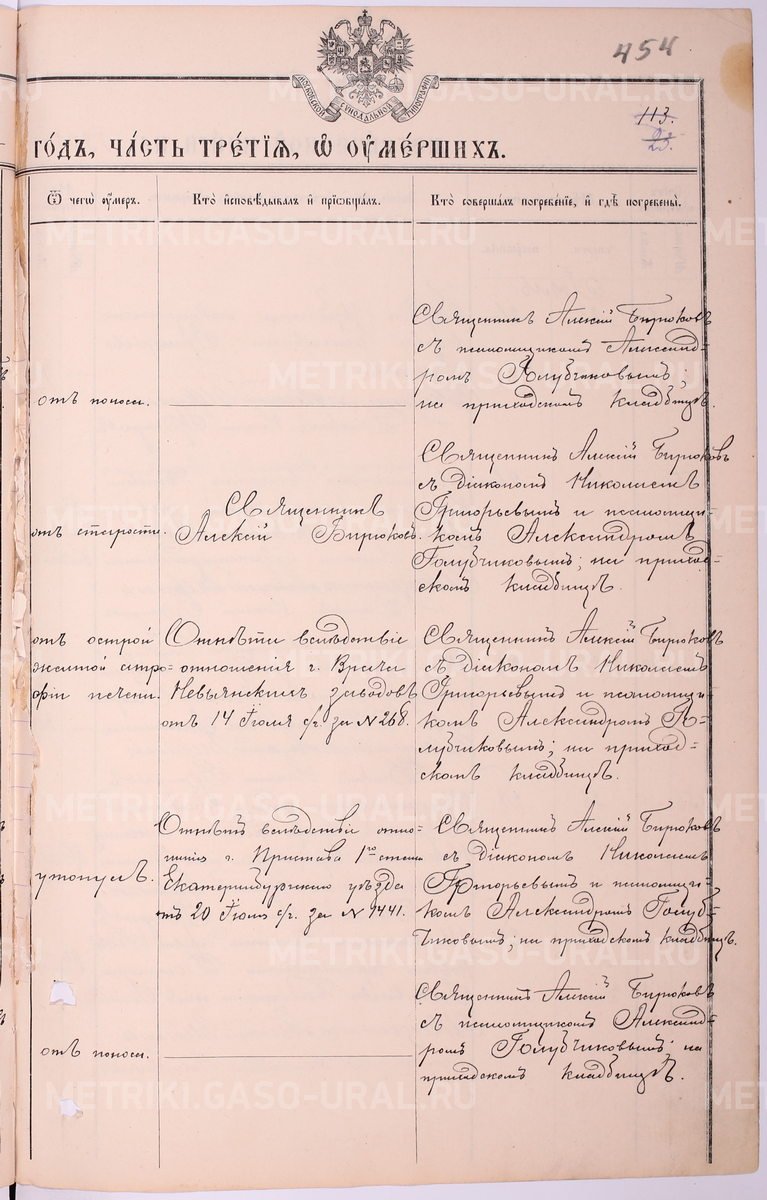 454
МОСКОВСКОЙ СѴНОДАЛЬНОЙ ТИПОГРАФІИ
113.
23.
ГО́ДЪ, ЧА́СТЬ ТРЕ́ТІѦ, Ѡ҆ ОУ҆МЕ́РШИХЪ.
Ѿ чегѡ̀ оу҆́меръ.
Кто̀ и҆сповѣ́дывалъ и҆ прїѡбща́лъ.
Кто̀ соверша́лъ погребе́нїе, и҆ гдѣ̀ погребены̀.
Священникъ Алексій Бирюковъ
съ псаломщикомъ Александ-
ромъ Голубчиковымъ;
отъ поноса.
на приходскомъ кладбищѣ.
Священникъ Алексій Бирюковъ
съ діакономъ Николаемъ
Священникъ
Григорьевымъ и псаломщи-
отъ старости.
Алексій Бирюковъ.
комъ Александромъ
Голубчиковымъ; на приход-
скомъ кладбищѣ.
отъ острой
желтой атро-
фіи печени.
Отпѣта вслѣдствіе
отношенія г. Врача
Невьянскихъ заводовъ
отъ 14 Іюля с/г. за № 268.
Священникъ Алексій Бирюковъ
съ діакономъ Николаемъ
Григорьевымъ и псаломщи-
комъ Александромъ Го-
лубчиковымъ; на приход-
скомъ кладбищѣ.
утонулъ.
Отпѣтъ вслѣдствіе отно-
шенія г. Пристава 1го стана
Екатеринбургскаго уѣзда
отъ 20 Іюля с/г. за № 1441.
Священникъ Алексій Бирюковъ
съ діакономъ Николаемъ
Григорьевымъ и псаломщи-
комъ Александромъ Голуб-
чиковымъ; на приходскомъ кладбищѣ.
Священникъ Алексій Бирюковъ
съ псаломщикомъ Александ-
отъ поноса.
ромъ Голубчиковымъ; на
приходскомъ кладбищѣ.
METRIKI.GASO-URAL.RU